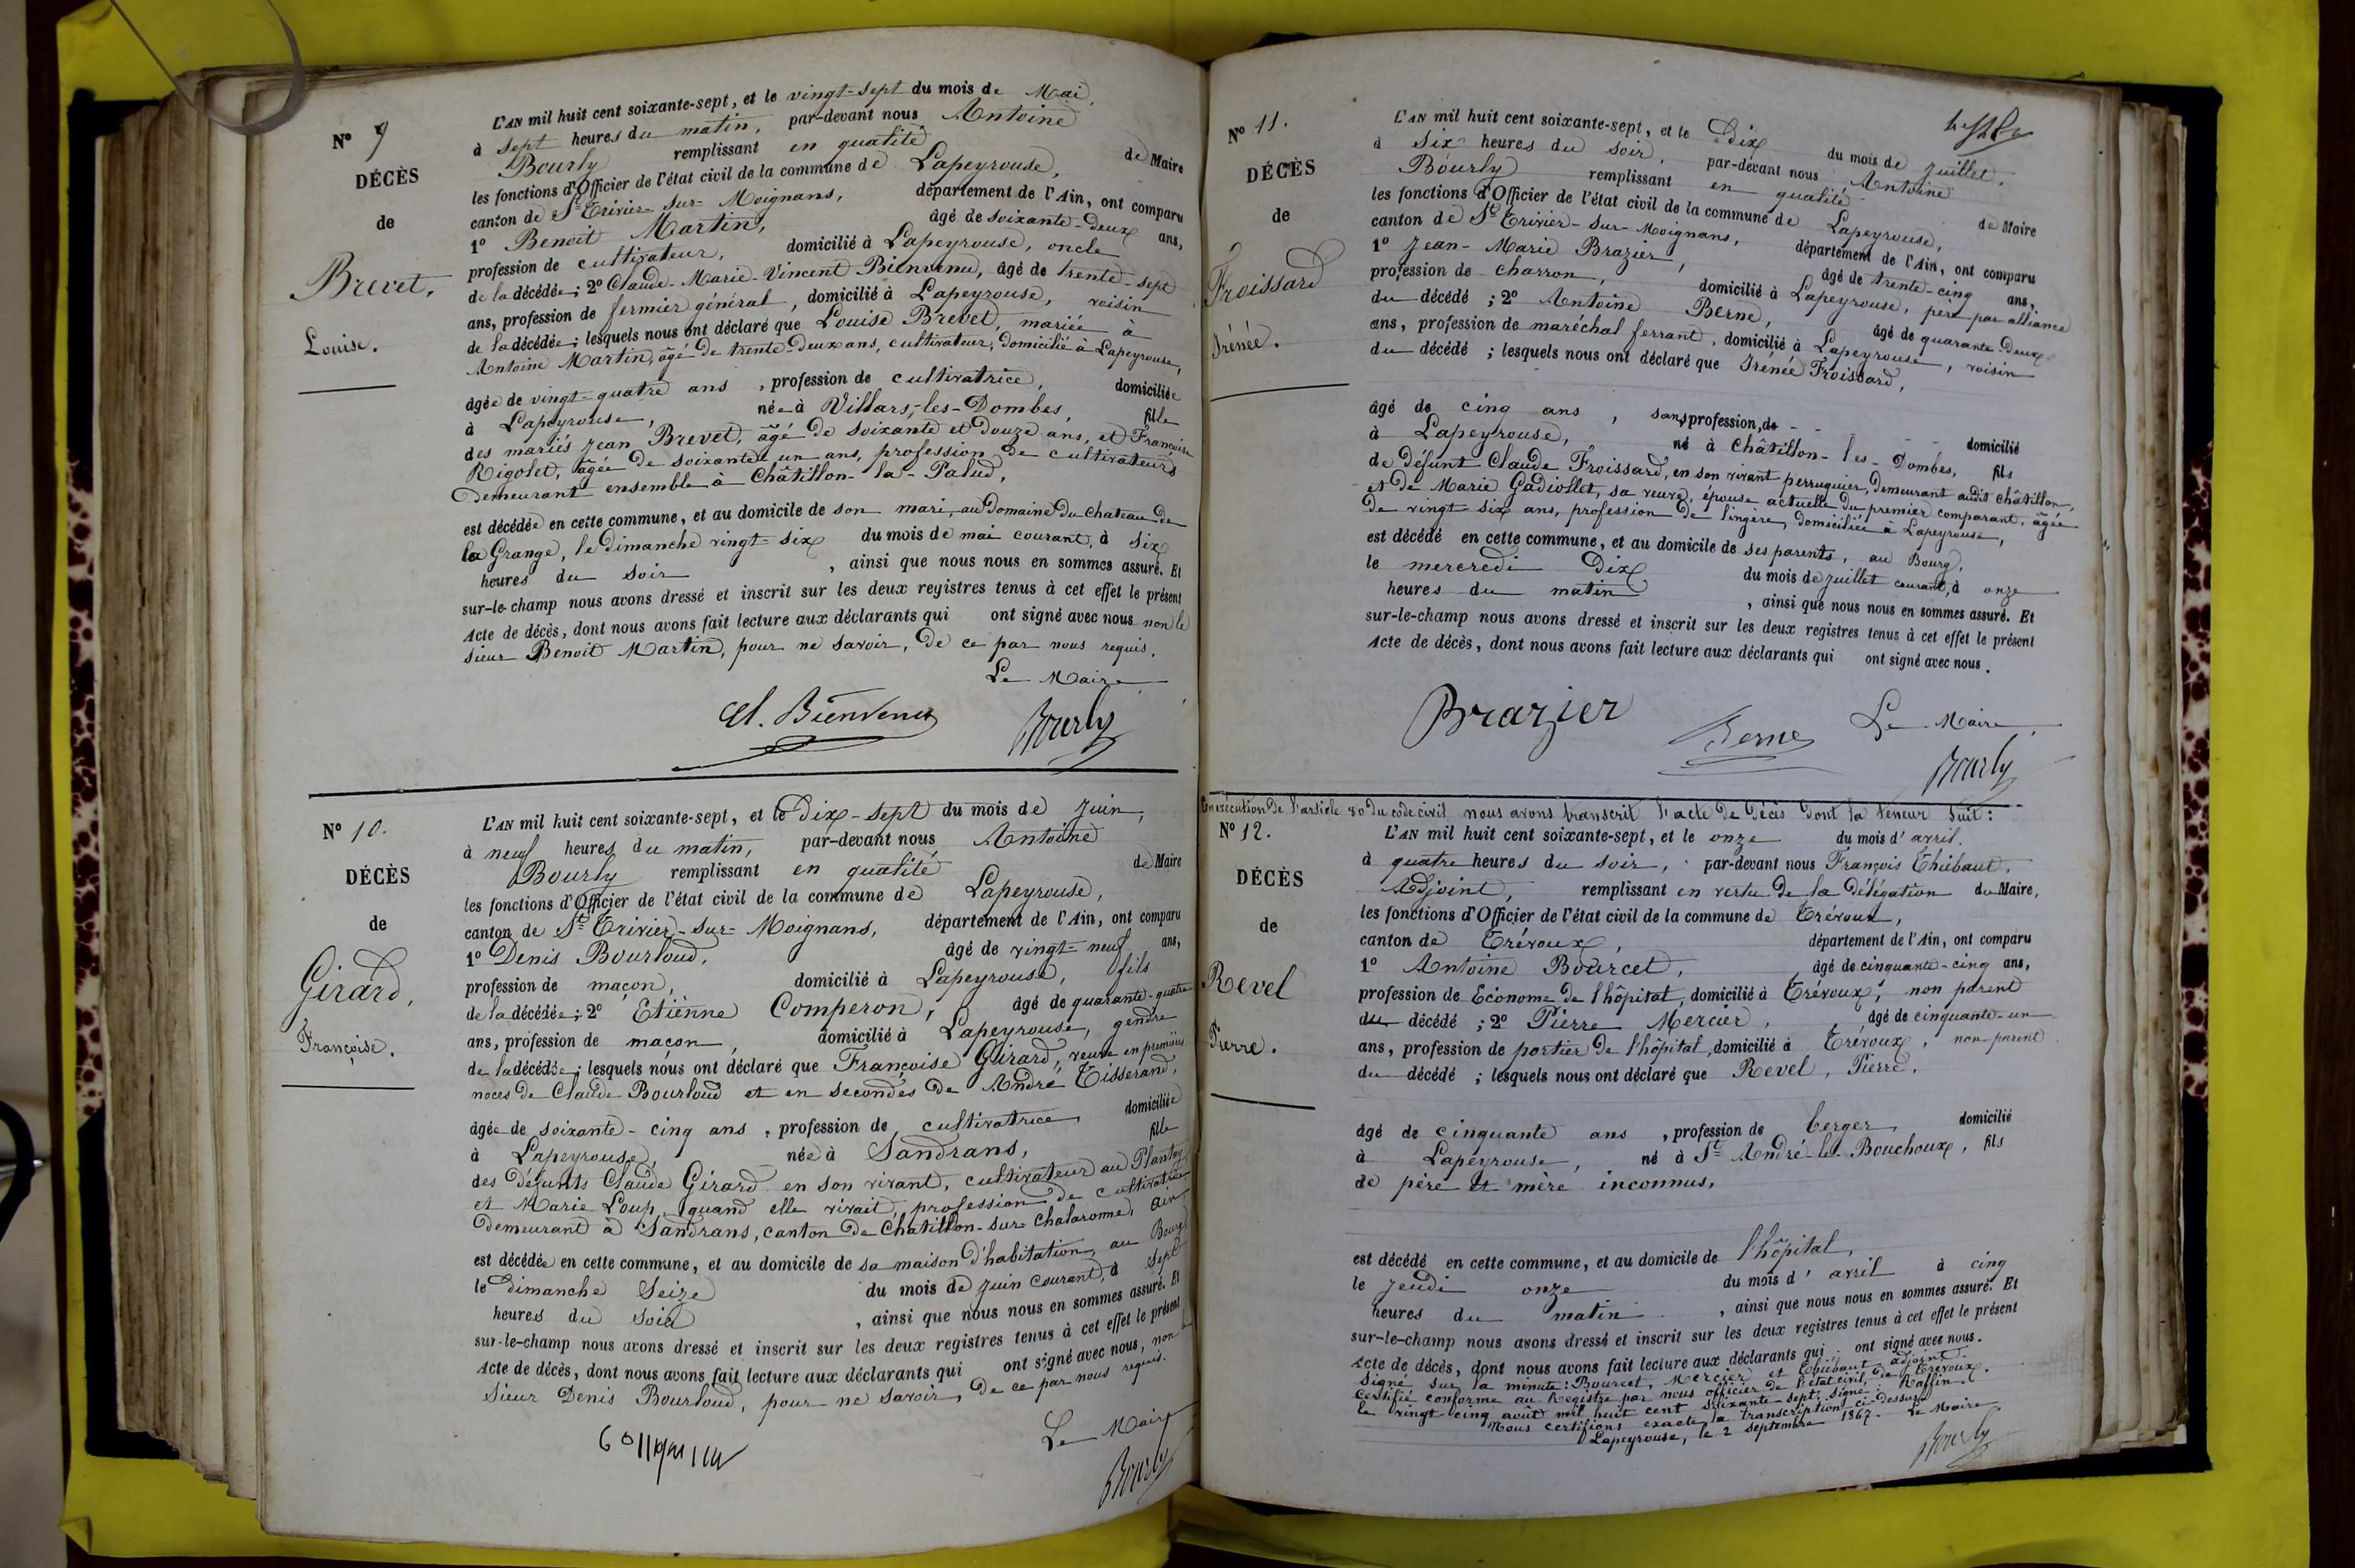 N° 9
DÉCÈS
de
Brevet,
Louise.
L'AN mil huit cent soixante-sept, et le vingt-sept du mois de Mai,
à sept heures du matin, par-devant nous Antoine
Bourly remplissant en qualité de Maire
les fonctions d'Officier de l'état civil de la commune de Lapeyrouse,
canton de St Trivier-sur-Moignans, département de l'Ain, ont comparu
1° Benoit Martin, âgé de soixante-deux ans,
profession de cultivateur, domicilié à Lapeyrouse, oncle
de la décédée; 2° Claude-Marie-Vincent Bienvenu, âgé de trente-sept
ans, profession de fermier général, domicilié à Lapeyrouse, voisin
de la décédée; lesquels nous ont déclaré que Louise Brevet, mariée à
Antoine Martin, âgé de trente-deux ans, cultivateur, domicilié à Lapeyrouse,
âgée de vingt-quatre ans, profession de cultivatrice, domiciliée
à Lapeyrouse, née à Villars-les-Dombes, fille
des mariés Jean Brevet, âgé de soixante et douze ans, et Françoise
Rigolet, âgée de soixante et un ans, profession de cultivateurs
demeurant ensemble à Châtillon-la-Palud,
est décédée en cette commune, et au domicile de son mari, au Domaine du Chateau de
la Grange, le dimanche vingt-six du mois de mai courant, à six
heures du soir, ainsi que nous nous en sommes assuré. Et
sur-le-champ nous avons dressé et inscrit sur les deux registres tenus à cet effet le présent
Acte de décès, dont nous avons fait lecture aux déclarants qui ont signé avec nous non le
sieur Benoit Martin, pour ne savoir, de ce par nous requis.
Le Maire
Cl. Bienvenu Bourly
N° 10.
DÉCÈS
de
Girard,
Françoise.
L'AN mil huit cent soixante-sept, et le dix-sept du mois de Juin,
à neuf heures du matin, par-devant nous Antoine
Bourly remplissant en qualité de Maire
les fonctions d'Officier de l'état civil de la commune de Lapeyrouse,
canton de St Trivier-sur-Moignans, département de l'Ain, ont comparu
1° Denis Bourloud, âgé de vingt-neuf ans,
profession de maçon, domicilié à Lapeyrouse, fils
de la décédée; 2° Etienne Comperon, âgé de quarante-quatre
ans, profession de maçon, domicilié à Lapeyrouse, gendre
de la décédée; lesquels nous ont déclaré que Françoise Girard, veuve en premières
noces de Claude Bourloud et en secondes de André Tisserand,
âgée de soixante-cinq ans, profession de cultivatrice, domiciliée
à Lapeyrouse, née à Sandrans, fille
des défunts Claude Girard en son vivant, cultivateur au Plantay
et Marie Loup, quand elle vivait, profession de cultivatrice
demeurant à Sandrans, canton de Chatillon-sur-Chalaronne, Ain
est décédée en cette commune, et au domicile de sa maison d'habitation, au Bourg
le dimanche seize du mois de juin courant, à sept
heures du soir, ainsi que nous nous en sommes assuré. Et
sur-le-champ nous avons dressé et inscrit sur les deux registres tenus à cet effet le présent
Acte de décès, dont nous avons fait lecture aux déclarants qui ont signé avec nous, non le
sieur Denis Bourloud, pour ne savoir, de ce par nous requis.
Le Maire
Bourly
N° 11.
DÉCÈS
de
Froissard
Irénée.
L'AN mil huit cent soixante-sept, et le dix du mois de Juillet,
à six heures du soir, par-devant nous Antoine
Bourly remplissant en qualité de Maire
les fonctions d'Officier de l'état civil de la commune de Lapeyrouse,
canton de St Trivier-sur-Moignans, département de l'Ain, ont comparu
1° Jean-Marie Brazier, âgé de trente-cinq ans,
profession de charron, domicilié à Lapeyrouse, père par alliance
du décédé; 2° Antoine Berne, âgé de quarante-deux
ans, profession de maréchal ferrant, domicilié à Lapeyrouse, voisin
du décédé; lesquels nous ont déclaré que Irénée Froissard,
âgé de cinq ans, sans profession, de - - - domicilié
à Lapeyrouse, né à Châtillon-les-Dombes, fils
de défunt Claude Froissard, en son vivant perruquier, demeurant audit Châtillon,
et de Marie Gadiollet, sa veuve, épouse actuelle du premier comparant, âgée
de vingt-six ans, profession de lingère, domiciliée à Lapeyrouse,
est décédé en cette commune, et au domicile de ses parents, au Bourg,
le mercredi dix du mois de juillet courant, à onze
heures du matin, ainsi que nous nous en sommes assuré. Et
sur-le-champ nous avons dressé et inscrit sur les deux registres tenus à cet effet le présent
Acte de décès, dont nous avons fait lecture aux déclarants qui ont signé avec nous.
Brazier Berne Le Maire
Bourly
En exécution de l'article 80 du code civil nous avons transcrit l'acte de décès dont la teneur suit:
N° 12.
DÉCÈS
de
Revel
Pierre.
L'AN mil huit cent soixante-sept, et le onze du mois d'avril,
à quatre heures du soir, par-devant nous François Thiébaut,
Adjoint, remplissant en vertu de la délégation du Maire,
les fonctions d'Officier de l'état civil de la commune de Trévoux,
canton de Trévoux, département de l'Ain, ont comparu
1° Antoine Bourcet, âgé de cinquante-cinq ans,
profession de Econome de l'hôpital, domicilié à Trévoux, non parent
du décédé; 2° Pierre Mercier, âgé de cinquante-un
ans, profession de portier de l'hôpital, domicilié à Trévoux, non-parent
du décédé; lesquels nous ont déclaré que Revel, Pierre,
âgé de cinquante ans, profession de berger, domicilié
à Lapeyrouse, né à St André-le-Bouchoux, fils
de père et mère inconnus,
est décédé en cette commune, et au domicile de l'hôpital,
le jeudi onze du mois d'avril à cinq
heures du matin, ainsi que nous nous en sommes assuré. Et
sur-le-champ nous avons dressé et inscrit sur les deux registres tenus à cet effet le présent
Acte de décès, dont nous avons fait lecture aux déclarants qui ont signé avec nous.
Signé sur la minute: Bourcet, Mercier et Thiébaut adjoint.
Certifié conforme au Registre par nous officier de l'état civil, de Trévoux.
le vingt-cinq août mil huit cent soixante-sept, signé: Raffin.
Nous certifions exacte la transcription ci-dessus
Lapeyrouse, le 2 septembre 1867. Le Maire
Bourly